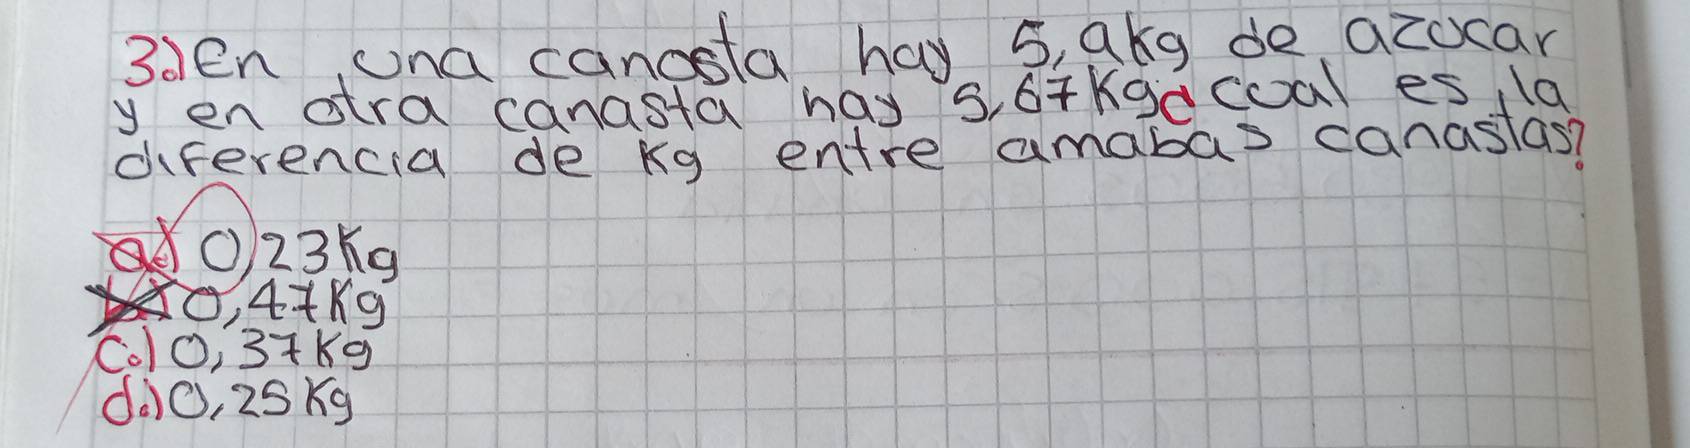 3.) En una canasta hay 5,9kg de azucar
y en otra canasta hay 5,67Kg cual es la
diferencia de Kg entre amabas canastas?
a.) 0,23Kg
b.) 0,47Kg
c.) 0,37Kg
d.) 0,25Kg